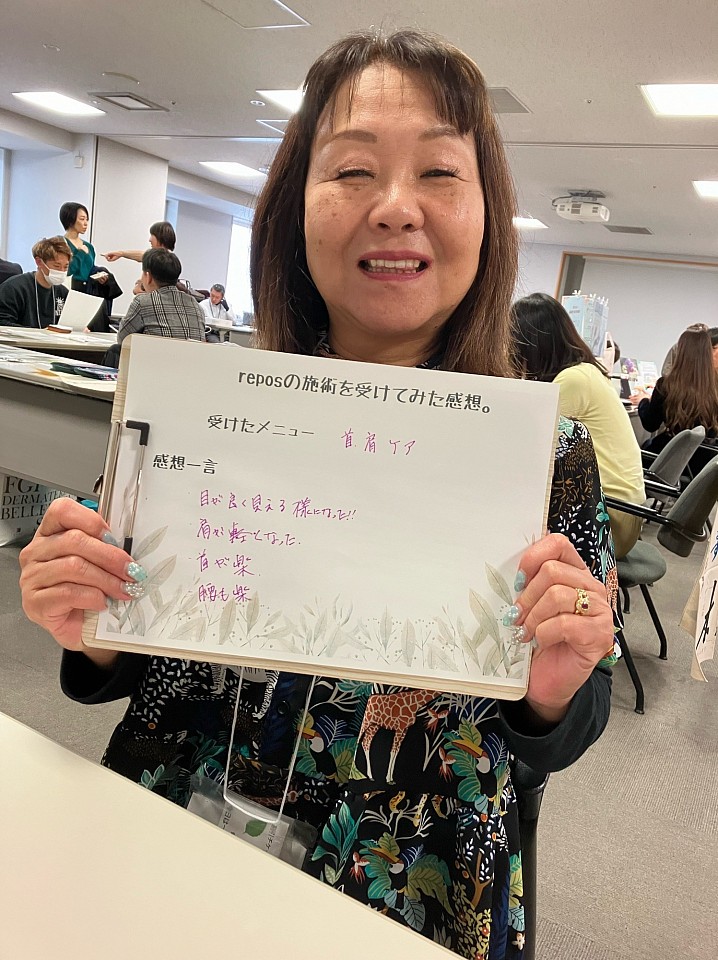 reposの施術を受けてみた感想。
受けたメニュー 首.肩ケア
感想一言
・目が良く見える様になった!!
・肩が軽くなった.
・首が楽.
・腰も楽
FGF
DERMATH
BELLE